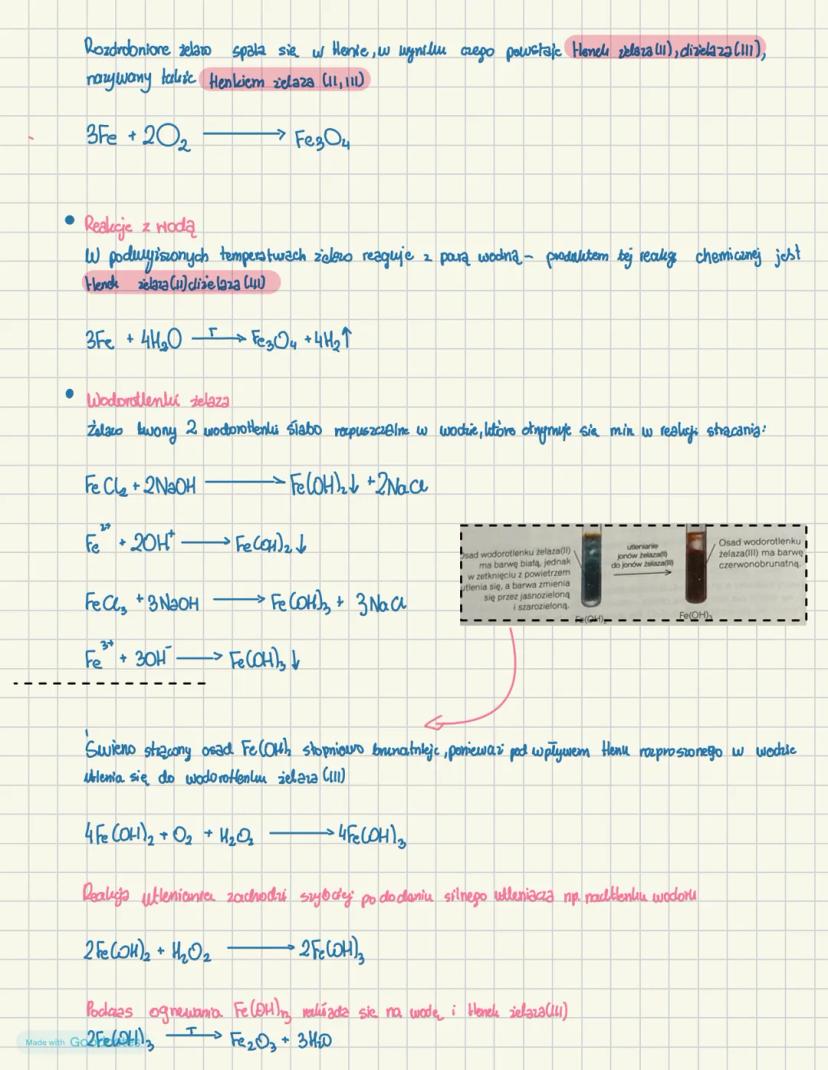 Rozdrobnione żelazo spala się w tlenie, w wyniku czego powstaje tlenek żelaza(II), diżelaza(III),
nazywany także tlenkiem żelaza (II, III)
3Fe + 2O₂ ⟶ Fe₃O₄
• Reakcje z wodą
W podwyższonych temperatwach żelazo reaguje z parą wodną - produktem tej reakcji chemicznej jest
tlenek żelaza(II)diżelaza(III)
3Fe + 4H₂O –T→ Fe₃O₄ + 4H₂↑
• Wodorotlenki żelaza
Żelazo tworzy 2 wodorotlenki słabo rozpuszczalne w wodzie, które otrzymuje się min. w reakcji strącania:
FeCl₂ + 2NaOH ⟶ Fe(OH)₂↓ + 2NaCl
Fe²⁺ + 2OH⁺ ⟶ Fe(OH)₂↓
FeCl₃ + 3NaOH ⟶ Fe(OH)₃ + 3NaCl
Fe³⁺ + 3OH⁻ ⟶ Fe(OH)₃↓
sad wodorotlenku żelaza(II)
ma barwę białą, jednak
w zetknięciu z powietrzem
utlenia się, a barwa zmienia
się przez jasnozieloną
i szarozieloną.
Fe(OH)₂
utlenianie
jonów żelaza(II)
do jonów żelaza(III)
Osad wodorotlenku
żelaza(III) ma barwę
czerwonobrunatną.
Fe(OH)₃
Świeżo strącony osad Fe(OH)₂ stopniowo brunatnieje, ponieważ pod wpływem tlenu rozproszonego w wodzie
utlenia się do wodorotlenku żelaza (III)
4Fe(OH)₂ + O₂ + H₂O₂ ⟶ 4Fe(OH)₃
Reakcja utleniania zachodzi szybciej po dodaniu silnego utleniacza np. nadtlenku wodoru
2Fe(OH)₂ + H₂O₂ ⟶ 2Fe(OH)₃
Podczas ogrzewania Fe(OH)₃ rozkłada się na wodę i tlenek żelaza(III)
2Fe(OH)₃ –T→ Fe₂O₃ + 3H₂O
Made with Goodnotes